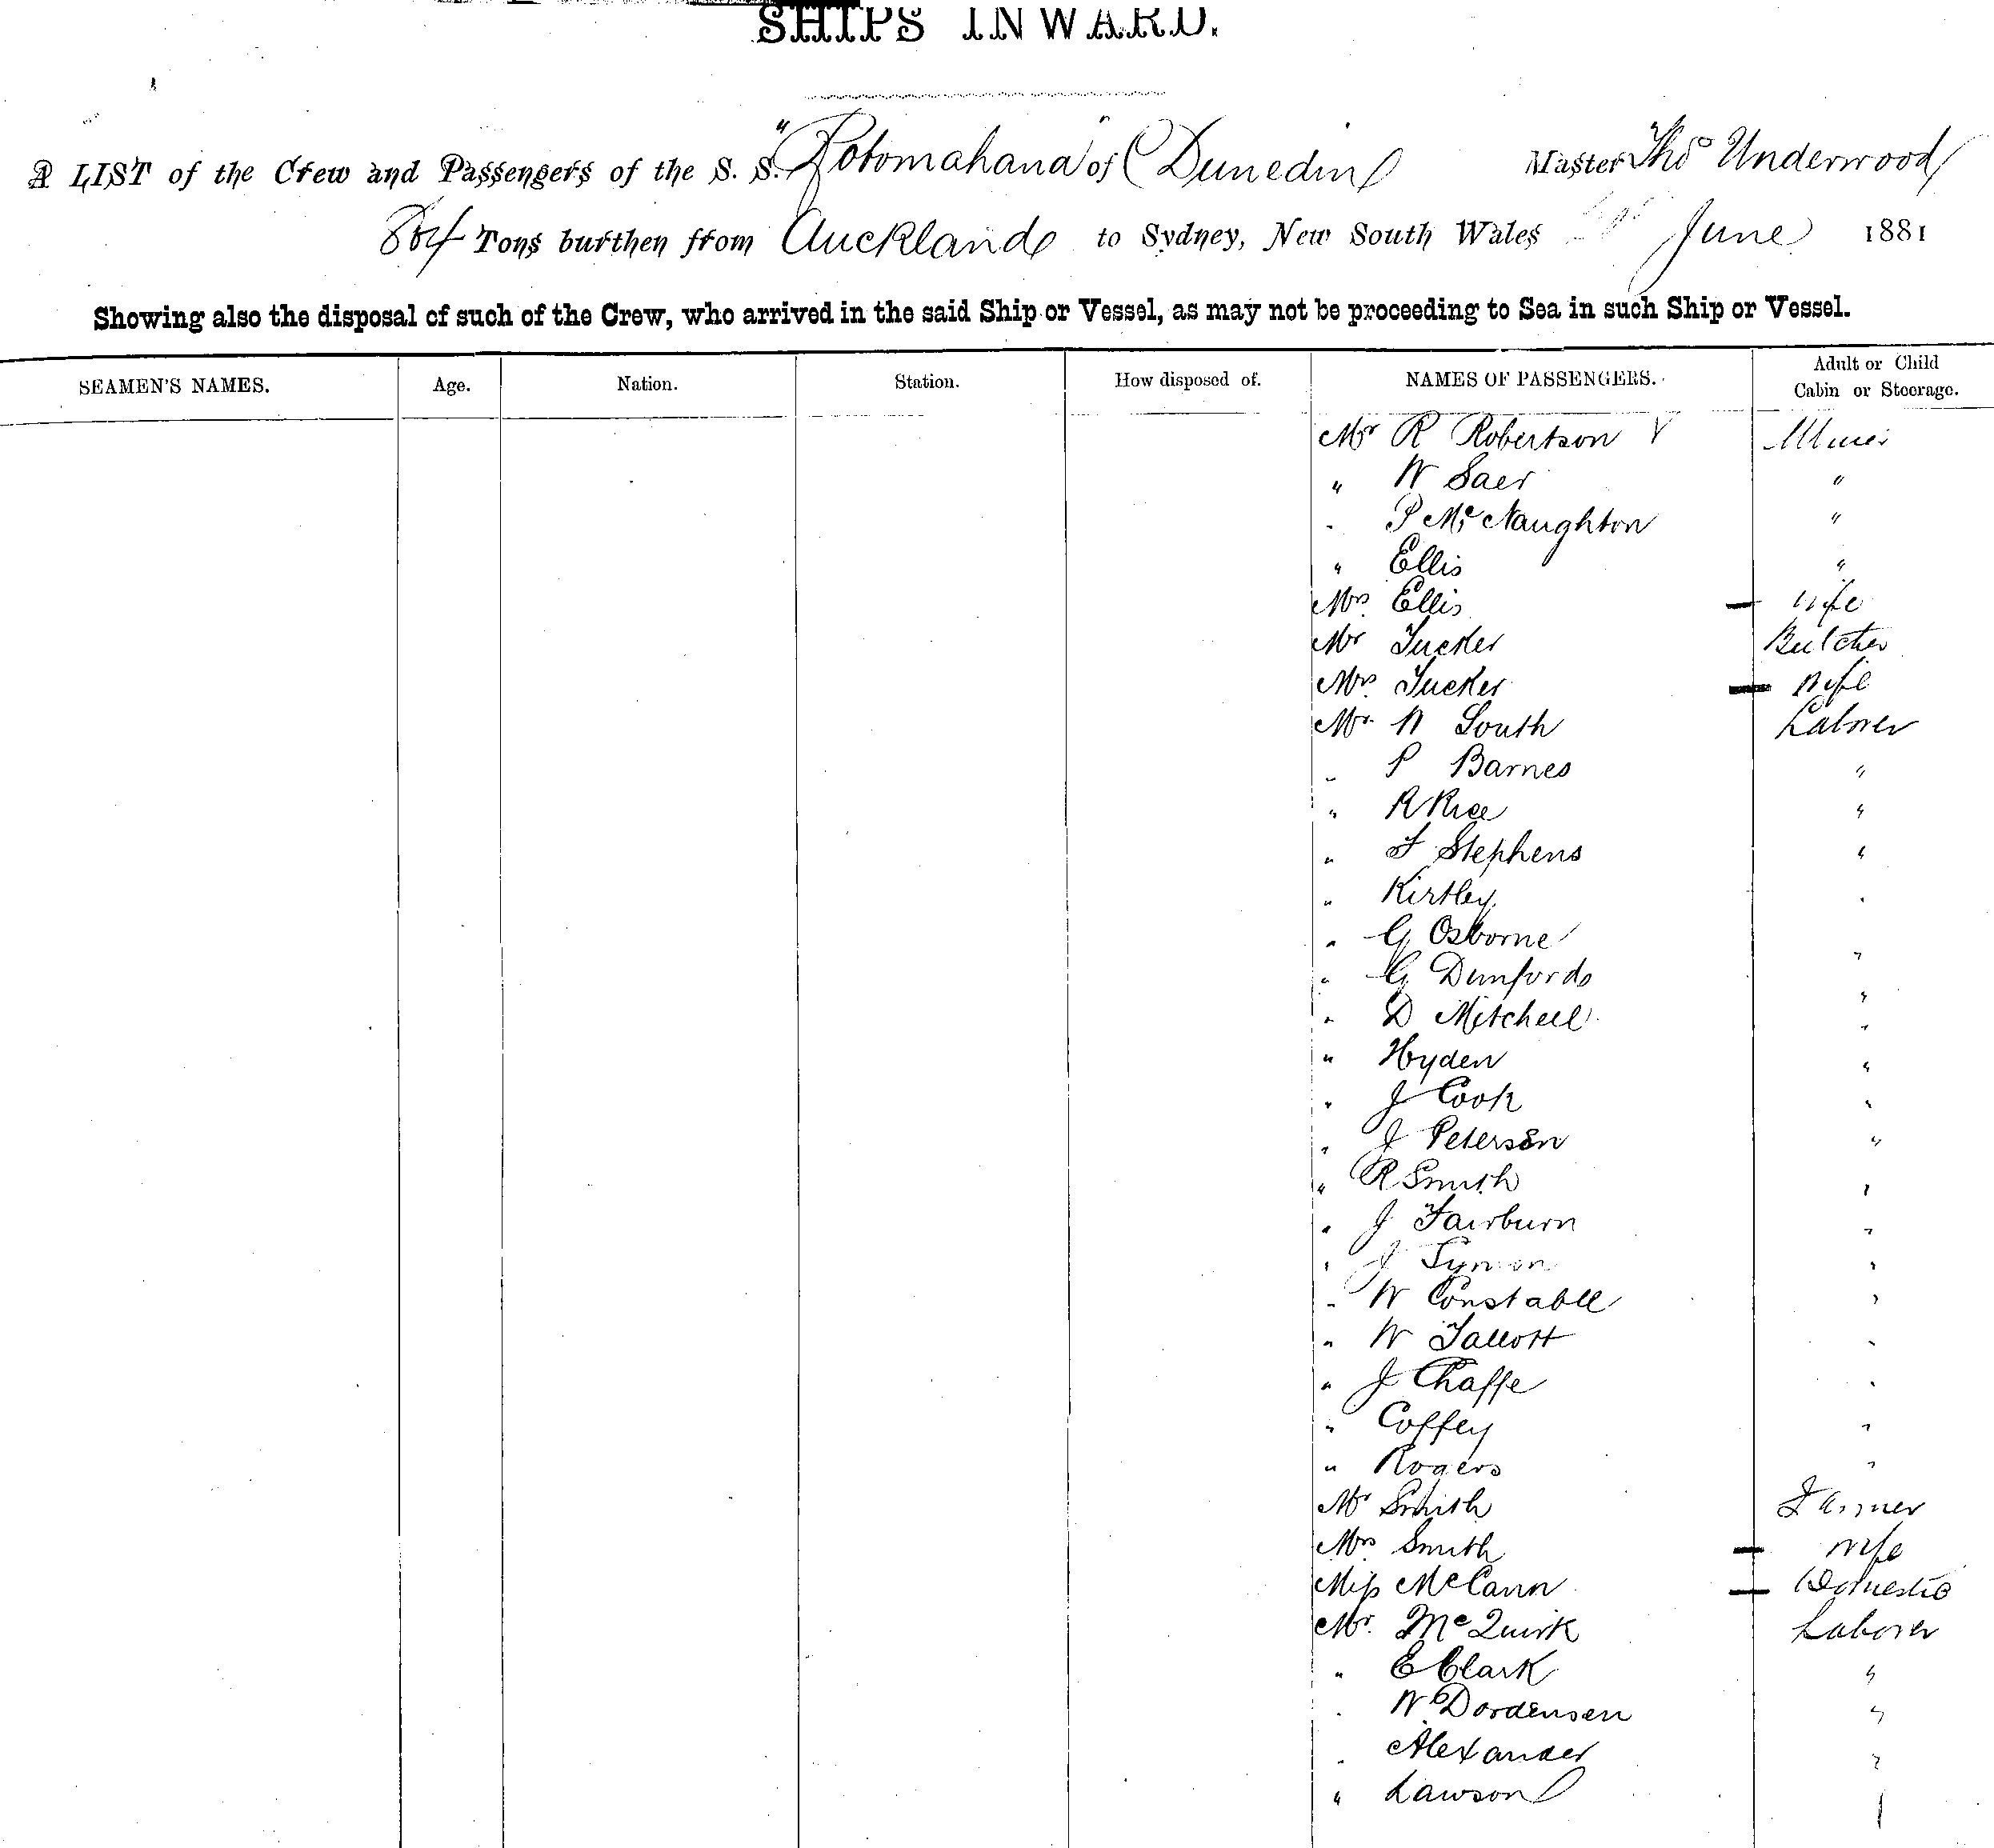 SHIPS INWARD.
A LIST of the Crew and Passengers of the S. S. "Rotomahana" of Dunedin Master Thos Underwood
864 Tons burthen from Auckland to Sydney, New South Wales June 1881
Showing also the disposal of such of the Crew, who arrived in the said Ship or Vessel, as may not be proceeding to Sea in such Ship or Vessel.
SEAMEN'S NAMES. Age. Nation. Station. How disposed of. NAMES OF PASSENGERS. Adult or Child Cabin or Steerage.
Mr R Robertson Miner
" W Saer "
" P McNaughton "
" Ellis "
Mrs Ellis — wife
Mr Tucker Butcher
Mrs Tucker — Wife
Mr W South Laborer
" P Barnes "
" R Rice "
" F Stephens "
" Kirtley "
" G Osborne "
" G Dunford "
" D Mitchell "
" Hyden "
" J Cook "
" J Petersen "
" R Smith "
" J Fairburn "
" J "
" W Constable "
" W Tallott "
" J Chaffe "
" Coffey "
" Rogers "
Mr Smith Farmer
Mrs Smith — Wife
Miss McCann — Domestic
Mr. McQuirk Laborer
" E Clark "
" W Dordensen "
" Alexander "
" Lawson